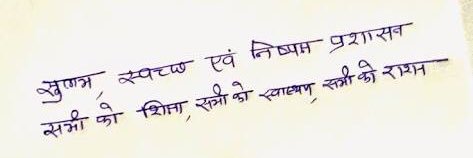 सुगम, स्वच्छ एवं निष्पक्ष प्रशासन
सभी को शिक्षा, सभी को स्वास्थ्य, सभी को राशन